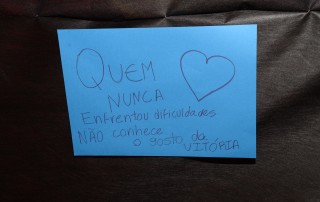 QUEM
NUNCA
Enfrentou dificuldades
NÃO conhece
o gosto da
VITÓRIA